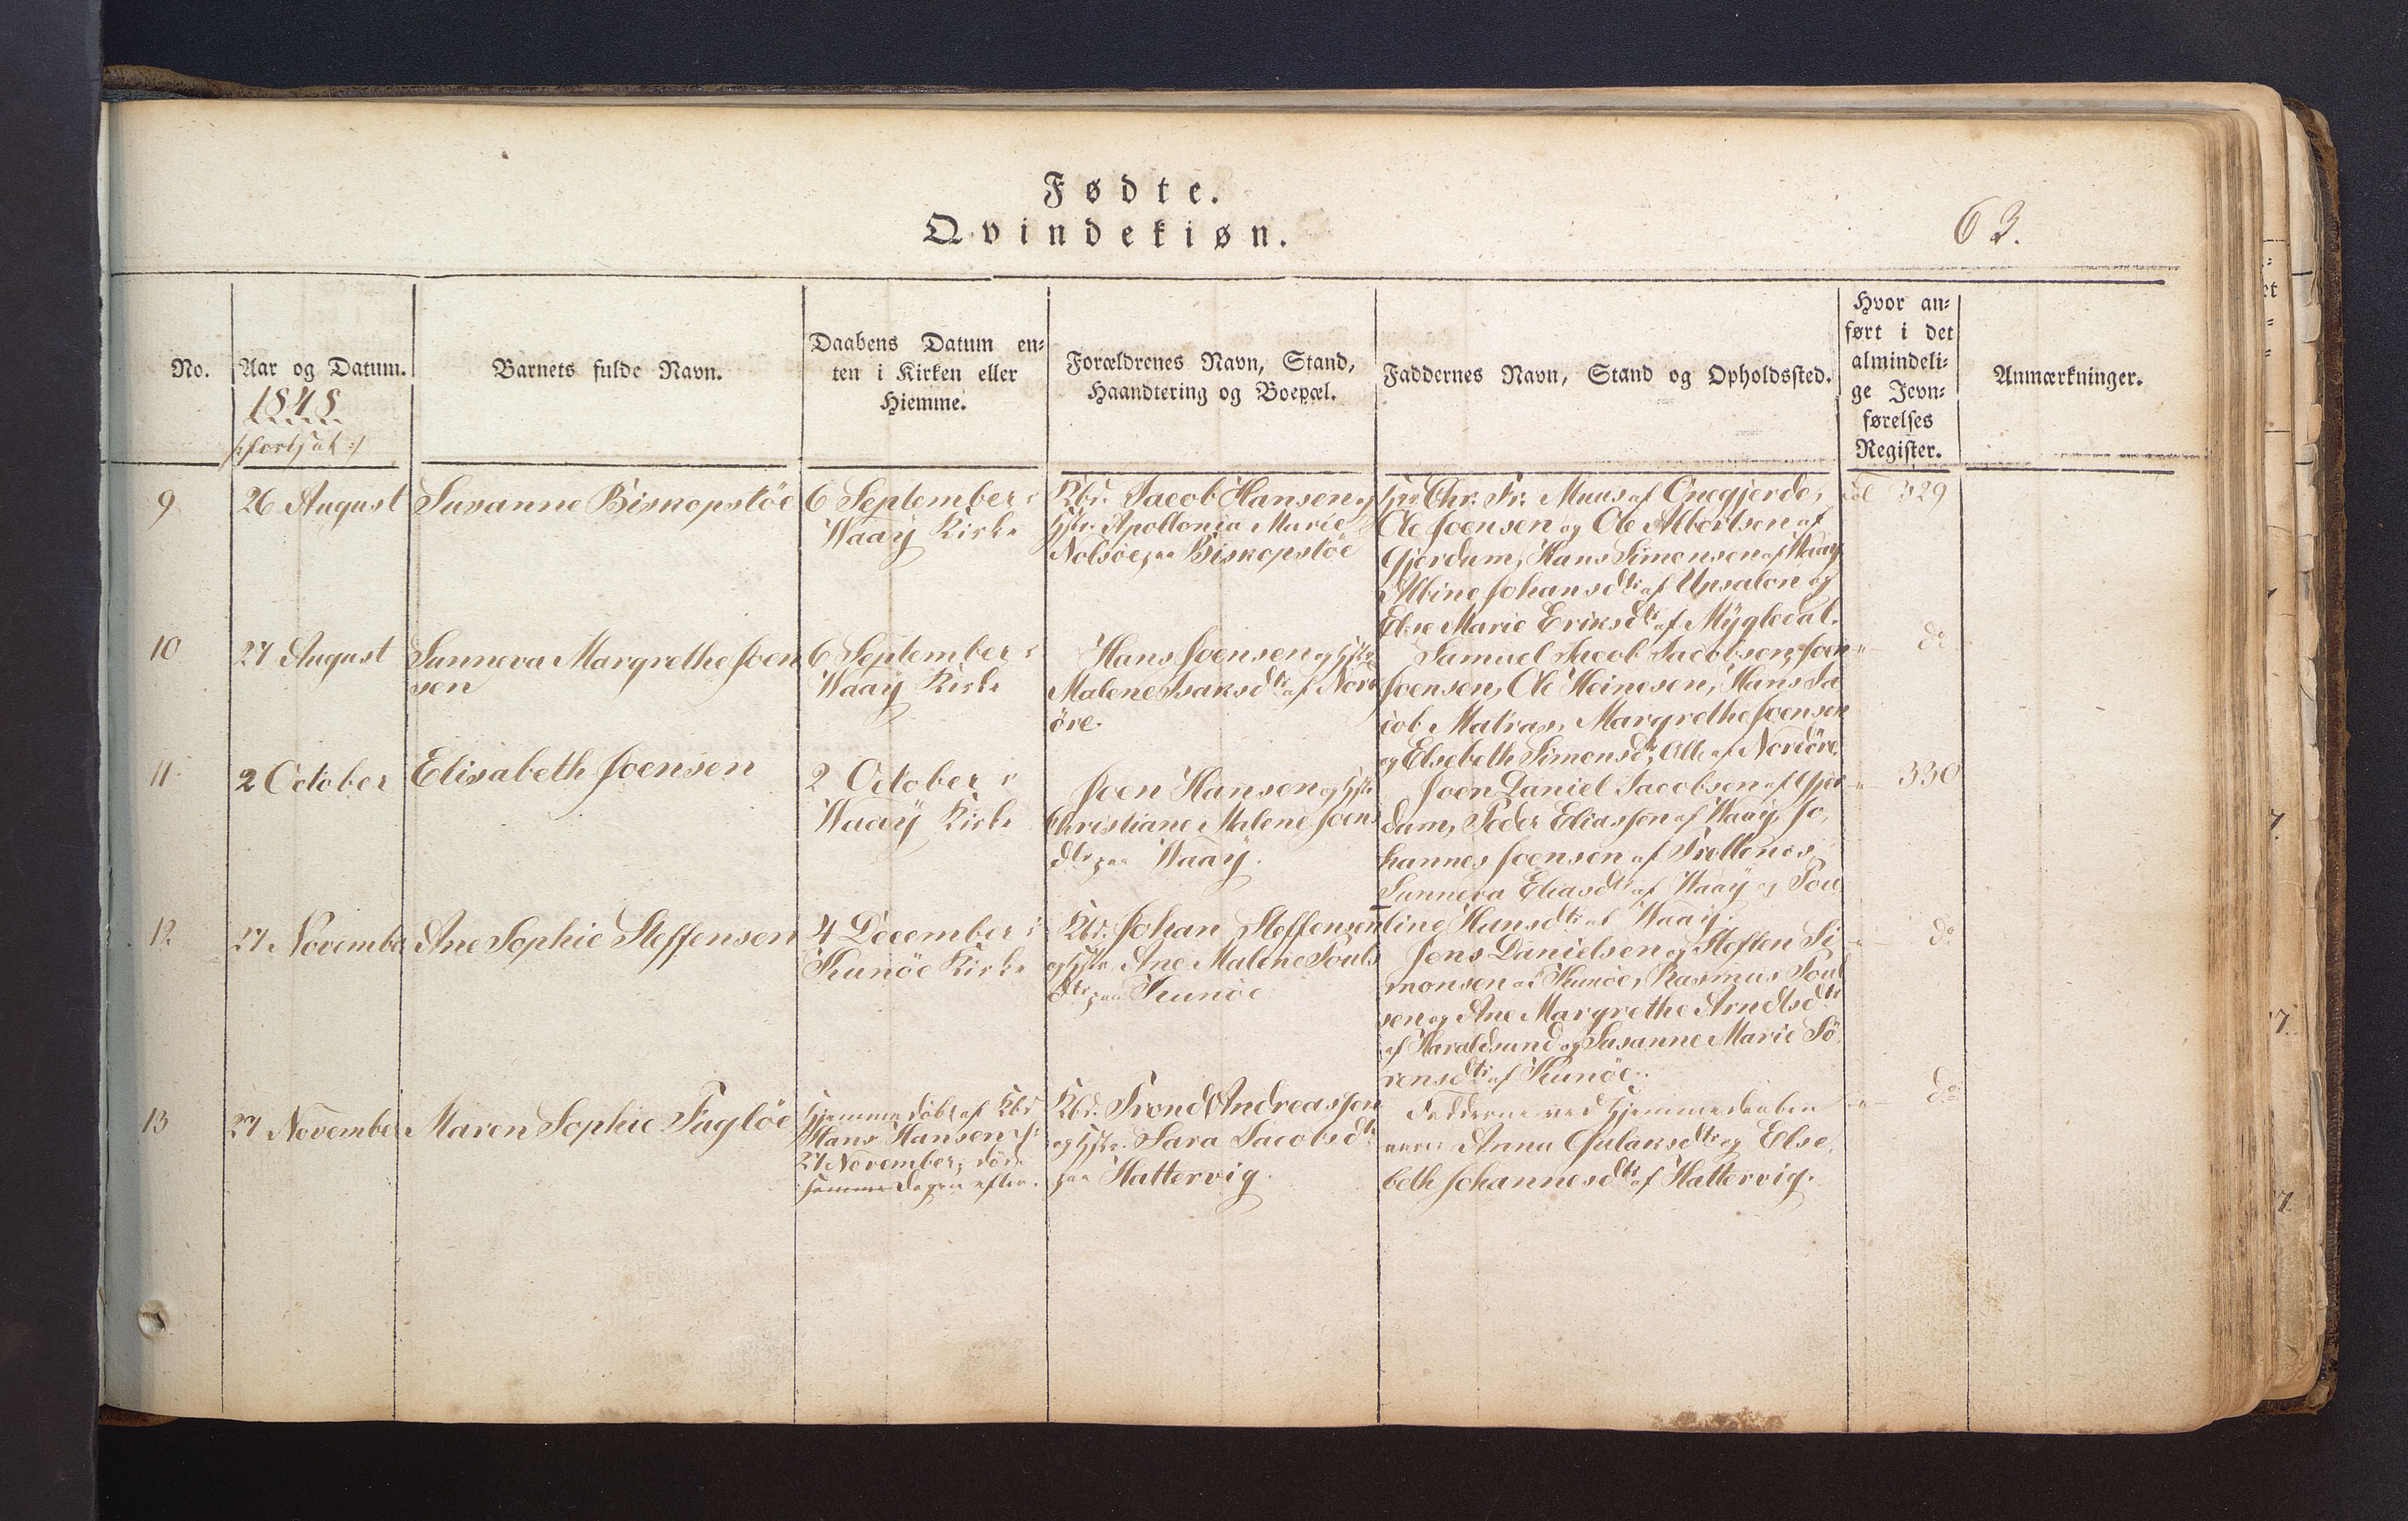 Fødte.
Qvindekiøn.
63.
No.
Aar og Datum.
1848.
/: fortsat :/
Barnets fulde Navn.
Daabens Datum en-
ten i Kirken eller
Hiemme.
Forældrenes Navn, Stand,
Haandtering og Boepæl.
Faddernes Navn, Stand og Opholdssted.
Hvor an-
ført i det
almindeli-
ge Jevn-
førelses
Register.
Anmærkninger.
9.
26 August
Susanne Biskopstöe
6 September i
Waaÿ Kirke
Kbd. Jacob Hansen og
Hstr. Apollonia Marie
Nolsöe, paa Biskopstöe
Hr. Chr. Fr. Muus af Önegjerde,
Ole Joensen og Ole Albertsen af
Gjerdum, Hans Simonsen af Waaÿ
Albine Johansdtr af Upsalon og
Else Marie Eriksdtr af Mÿgledal.
329
10
27 August
Sunneva Margrethe Joen
sen
6 September i
Waaÿ Kirke
Hans Joensen og Hstr
Malene Isaksdtr af Nord
öre.
Samuel Jacob Jacobsen, Joen
Joensen, Ole Heinesen, Hans Ja
cob Matras, Margrethe Joensen
og Elsebeth Simonsdtr, Alle af Nordöre.
do
11
2 October
Elisabeth Joensen
2 October i
Waaÿ Kirke
Joen Hansen og Hstr
Christiane Malene Joens
dtr paa Waaÿ.
Joen Daniel Jacobsen af Gjer
dum, Peder Eliassen af Waaÿ, Jo,
hannes Joensen af Trellenes,
Sunneva Eliasdtr af Waaÿ og Pou
line Hansdtr af Waaÿ.
330
12.
27 November
Ane Sophie Steffensen
4 December i
Kunöe Kirke
Kbd. Johan Steffensen
og Hstr. Ane Malene Pouls
dtr paa Kunöe
Jens Danielsen og Steffen Si
monsen af Kunöe, Rasmus Poul
sen og Ane Margrethe Arndtsdtr
af Haraldsund og Susanne Marie Sö
rensdtr af Kunöe.
do
13
27 November
Maren Sophie Fuglöe
Hjemmedöbt af Kbd
Hans Hansen d:
27 November, döde
samme dagen efter.
Kbd. Trond Andreassen
og Hstr. Sara Jacobsdtr
paa Hattervig.
Fadderne ved Hjemmedaaben
vare: Anna Gulaksdtr og Else,
beth Johannesdtr af Hattervig.
do